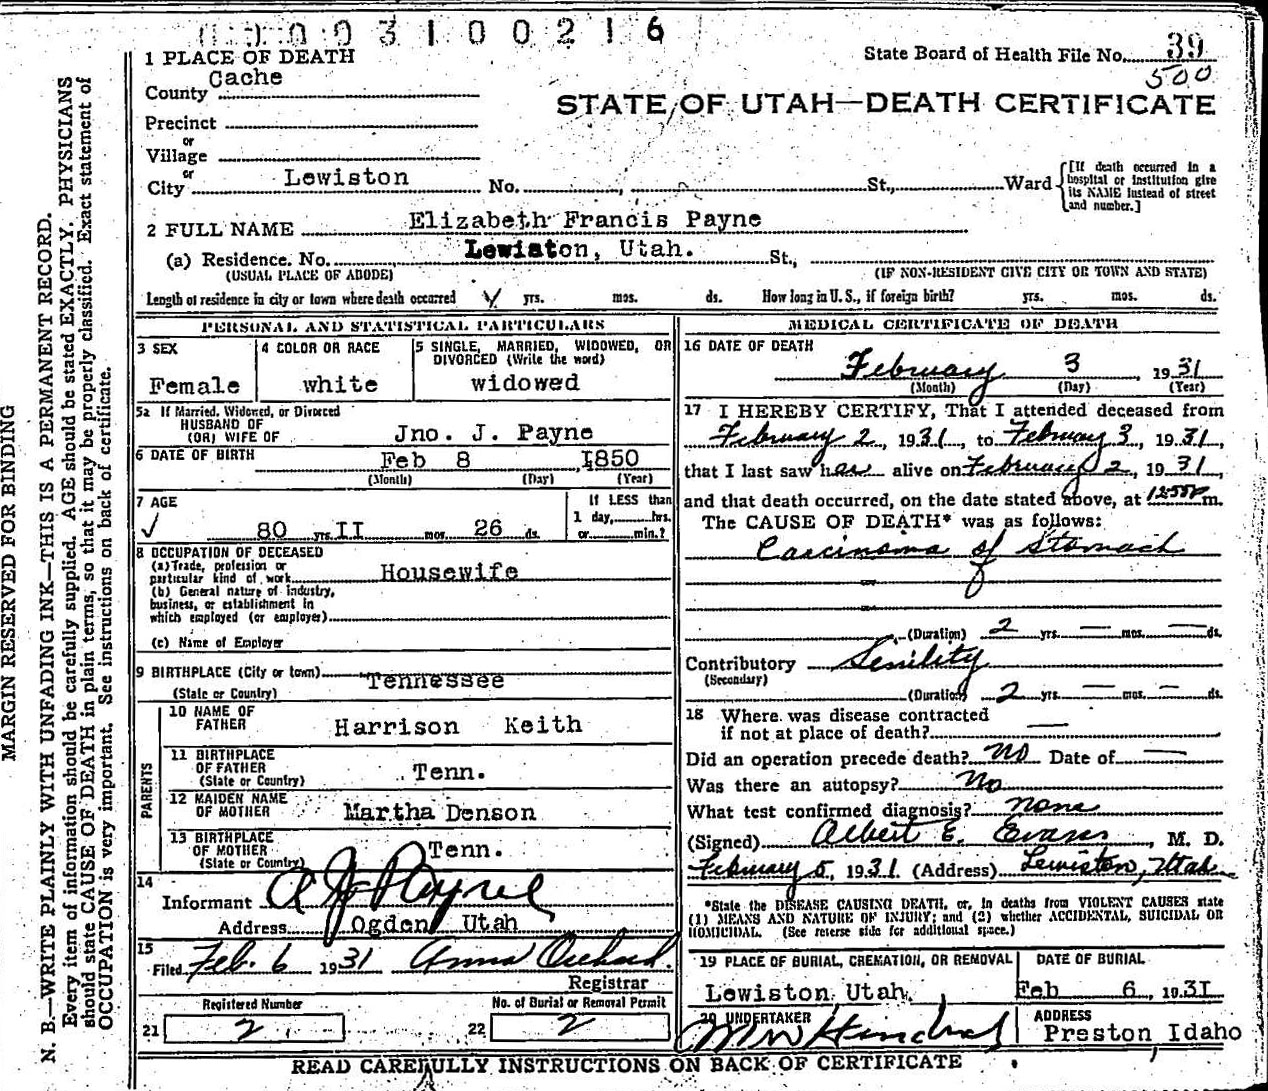 00003100216
State Board of Health File No. 39
500
1 PLACE OF DEATH
County Cache
STATE OF UTAH—DEATH CERTIFICATE
Precinct
or
Village
or
City Lewiston No. , St., Ward
[If death occurred in a hospital or institution give its NAME instead of street and number.]
2 FULL NAME Elizabeth Francis Payne
(a) Residence. No. Lewiston, Utah. St.,
(USUAL PLACE OF ABODE) (IF NON-RESIDENT GIVE CITY OR TOWN AND STATE)
Length of residence in city or town where death occurred yrs. mos. ds. How long in U. S., if foreign birth? yrs. mos. ds.
PERSONAL AND STATISTICAL PARTICULARS
3 SEX
Female
4 COLOR OR RACE
white
5 SINGLE, MARRIED, WIDOWED, OR
DIVORCED (Write the word)
widowed
5a If Married, Widowed, or Divorced
HUSBAND OF
(OR) WIFE OF Jno. J. Payne
6 DATE OF BIRTH Feb 8 1850
(Month) (Day) (Year)
7 AGE
80 yrs. II mos. 26 ds.
If LESS than
1 day, hrs.
or min.?
8 OCCUPATION OF DECEASED
(a) Trade, profession or
particular kind of work Housewife
(b) General nature of industry,
business, or establishment in
which employed (or employer)
(c) Name of Employer
9 BIRTHPLACE (City or town) Tennessee
(State or Country)
PARENTS
10 NAME OF
FATHER Harrison Keith
11 BIRTHPLACE
OF FATHER
(State or Country) Tenn.
12 MAIDEN NAME
OF MOTHER Martha Denson
13 BIRTHPLACE
OF MOTHER
(State or Country) Tenn.
14
Informant A J Payne
Address Ogden Utah
15
Filed Feb. 6 1931 Anna Orchard
Registrar
Registered Number
21 2
No. of Burial or Removal Permit
22 2
MEDICAL CERTIFICATE OF DEATH
16 DATE OF DEATH
February 3, 1931
(Month) (Day) (Year)
17 I HEREBY CERTIFY, That I attended deceased from
February 2, 1931, to February 3, 1931,
that I last saw her alive on February 2, 1931,
and that death occurred, on the date stated above, at m.
The CAUSE OF DEATH* was as follows:
Carcinoma of Stomach
(Duration) 2 yrs. — mos. — ds.
Contributory Senility
(Secondary)
(Duration) 2 yrs. — mos. — ds.
18 Where was disease contracted
if not at place of death? —
Did an operation precede death? No Date of —
Was there an autopsy? No
What test confirmed diagnosis? none
(Signed) Albert E. Evans, M. D.
February 5, 1931. (Address) Lewiston, Utah
*State the DISEASE CAUSING DEATH, or, in deaths from VIOLENT CAUSES state
(1) MEANS AND NATURE OF INJURY; and (2) whether ACCIDENTAL, SUICIDAL OR
HOMICIDAL. (See reverse side for additional space.)
19 PLACE OF BURIAL, CREMATION, OR REMOVAL
Lewiston Utah,
DATE OF BURIAL
Feb 6, 1931
20 UNDERTAKER
ADDRESS
Preston Idaho
READ CAREFULLY INSTRUCTIONS ON BACK OF CERTIFICATE
MARGIN RESERVED FOR BINDING
N. B.—WRITE PLAINLY WITH UNFADING INK—THIS IS A PERMANENT RECORD.
Every item of information should be carefully supplied. AGE should be stated EXACTLY. PHYSICIANS
should state CAUSE OF DEATH in plain terms, so that it may be properly classified. Exact statement of
OCCUPATION is very important. See instructions on back of certificate.